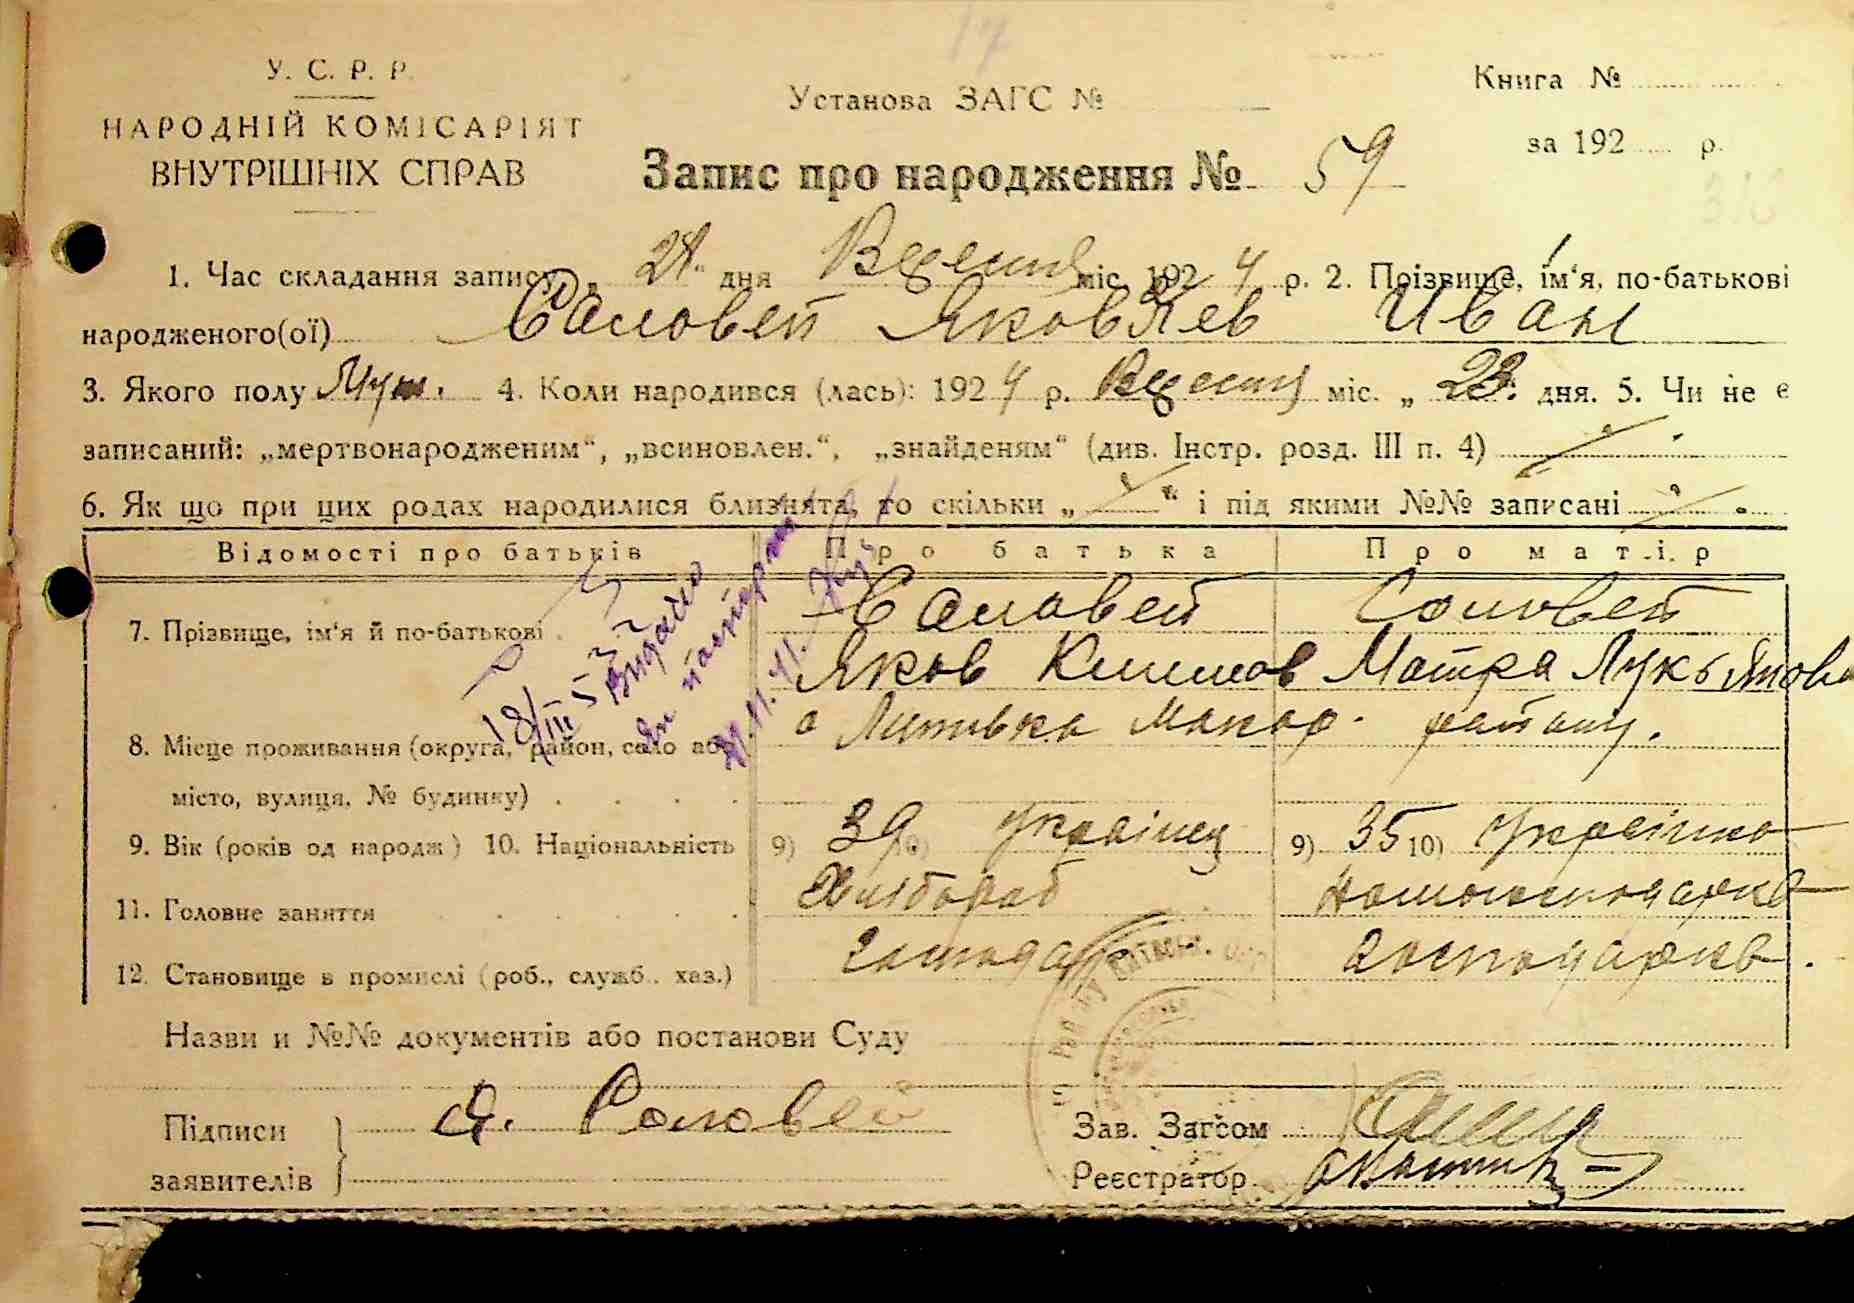 У. С. Р. Р.
НАРОДНІЙ КОМІСАРІЯТ
ВНУТРІШНІХ СПРАВ
Установа ЗАГС №
Книга №
за 192 р.
Запис про народження № 59
1. Час складання запису „ 24 " дня Вересня міс. 1924 р. 2. Прізвище, ім‘я, по-батькові
народженого(ої) Соловей Яковлев Иван
3. Якого полу Муж. 4. Коли народився (лась): 1924 р. Вересня міс. „ 23. дня. 5. Чи не є
записаний: „мертвонародженим“, „всиновлен.“, „знайденям“ (див. Інстр. розд. III п. 4)
6. Як що при цих родах народилися близнята, то скільки „ “ і під якими №№ записані
Відомості про батьків Про батька Про матір
7. Прізвище, ім‘я й по-батькові Соловей Соловей
Яков Климов Мотря Лукьянова
8. Місце проживання (округа, район, село або с Липівка Макар. району.
місто, вулиця, № будинку)
9. Вік (років од народж) 10. Національність 9) 39 10) українец 9) 35 10) українка
11. Головне заняття Хлібороб домогосподарка
12. Становище в промислі (роб., служб., хаз.) господар господарка.
18/III 5 Видано
Назви и №№ документів або постанови Суду
Підписи заявителів Я. Соловей
Зав. Загсом
Реєстратор